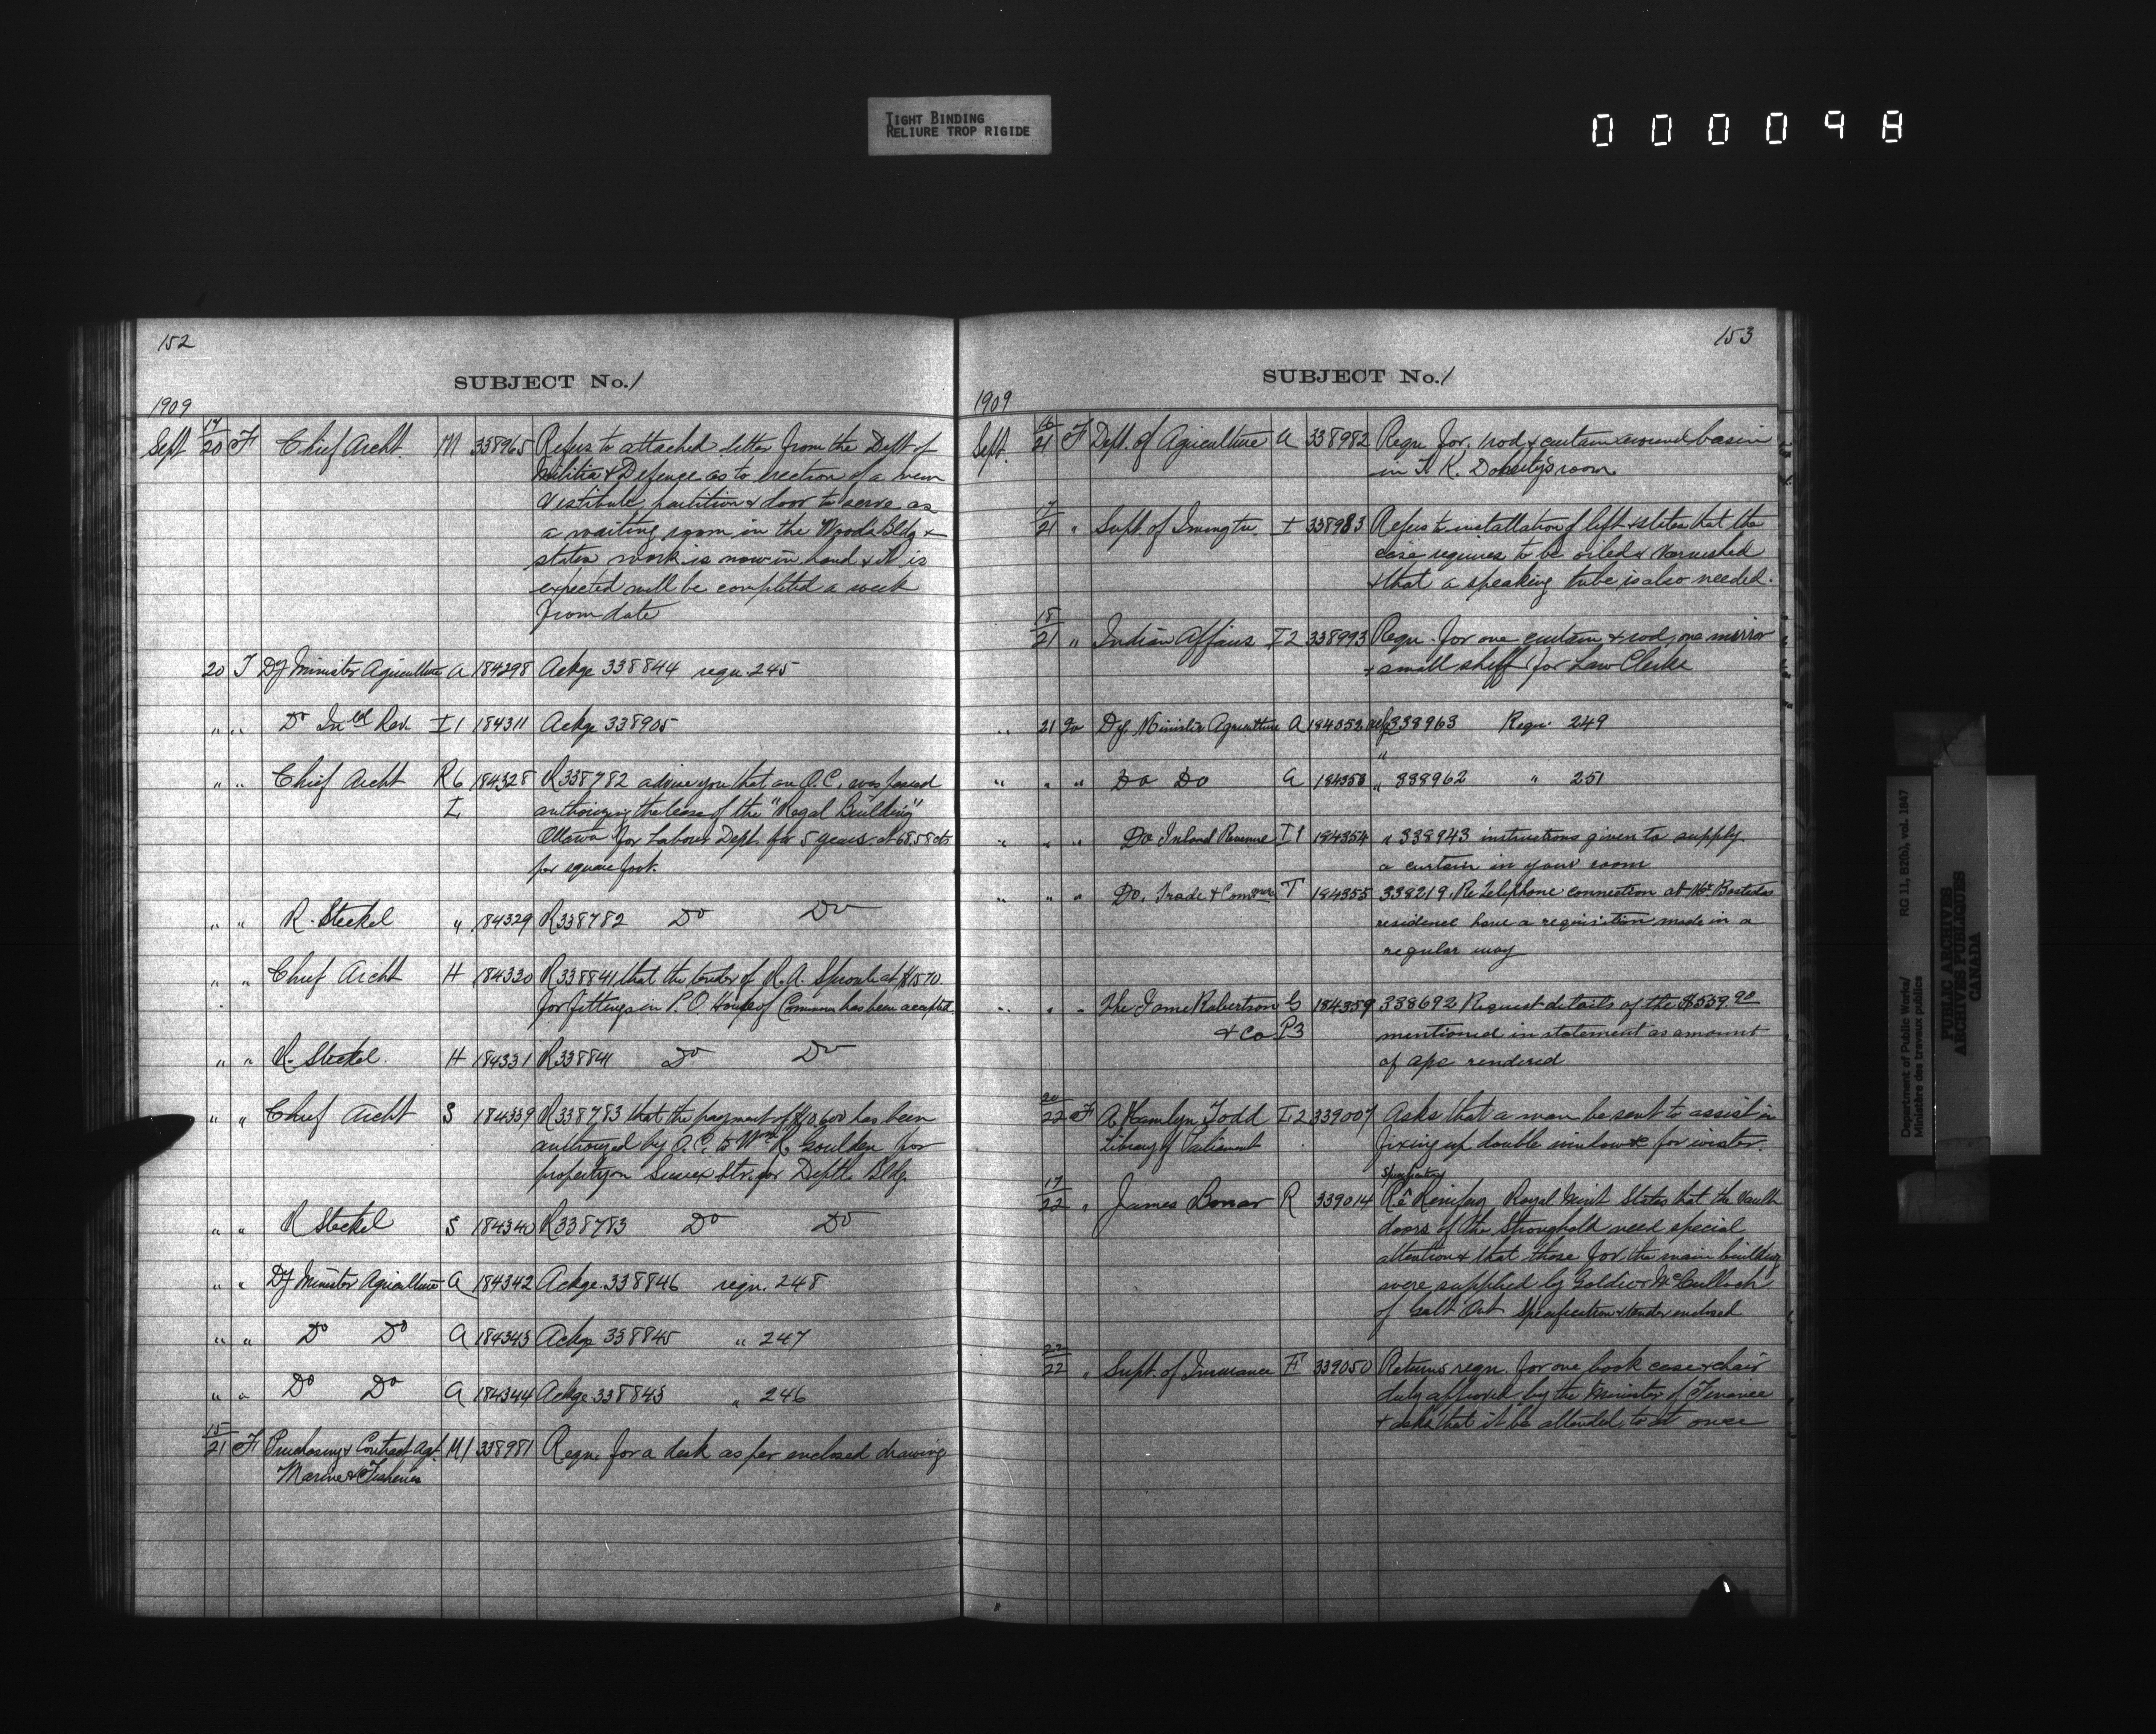 TIGHT BINDING
RELIURE TROP RIGIDE
000098
152
SUBJECT No. 1
1909
Sept 17/20 F Chief Archt. M 338965 Refers to attached letter from the Dept of
Militia & Defence as to erection of a new
Vestibule partition & door to serve as
a waiting room in the Woods Bldg &
states work is now in hand & it is
expected will be completed a week
from date
20 T Dy Minister Agriculture A 184298 Ackge 338844 regn. 245
" " Do Inld Rev. I1 184311 Ackge 338905
" " Chief Archt R6 184328 R338782 advise you that an O.C. was passed
I authorizing the lease of the "Regal Building"
Ottawa for Labour Dept. for 5 years at 68.58 cts
per square foot.
" " R. Steckel " 184329 R338782 Do Do
" " Chief Archt H 184330 R338841 that the tender of R. A. Sproule at $1570.
for fittings in P.O. House of Commons has been accepted.
" " R. Steckel. H 184331 R338841 Do Do
" " Chief Archt S 184339 R338783 that the payment of $10,600 has been
authorized by O.C. to Wm R. Goulden for
property on Sussex Str. for Deptl. Bldg.
" " R Steckel S 184340 R338783 Do Do
" " Dy Minister Agriculture A 184342 Ackge 338846 regn. 248
" " Do Do A 184343 Ackge 338845 " 247
" " Do Do A 184344 Ackge 338843 " 246
15/21 F Purchasing & Contract Agt. M1 338981 Regn. for a desk as per enclosed drawing
Marine & Fisheries
153
SUBJECT No. 1
1909
Sept. 16/21 F Dept. of Agriculture A 338982 Regn for rod & curtain around basin
in T. K. Doherty's room
7/21 " Supt. of Immgtn. I 338983 Refers to installation of lift & states that the
case requires to be oiled & varnished
& that a speaking tube is also needed.
18/21 " Indian Affairs I2 338993 Regn. for one curtain & rod, one mirror
& small shelf for Law Clerk
" 21 To Dy. Minister Agriculture A 184352 ackg 338963 Regn. 249
" " " Do Do A 184353 " 338962 " 251
" " " Do Inland Revenue I1 184354 " 338943 instructions given to supply
a curtain in your room
" " " Do. Trade & Commrce T 184355 338219. Re Telephone connection at Mr. Bastedos
residence have a requisition made in a
regular way
" " " The James Robertson G 184359 338692 Request details of the $539.90
& Co P3 mentioned in statement as amount
of a/c rendered
20/22 F A. Hamlyn Todd I2 339007 Asks that a man be sent to assist in
Library of Parliament fixing up double windows for winter.
17/22 " James Bonar R 339014 Re Royal Mint States that the vault
doors of the Stronghold need special
attention & that those for the main building
were supplied by Goldie & McCulloch
of Galt Ont. Specification & tender enclosed
22/22 " Supt. of Insurance F 339050 Returns regn. for one book case & chair
duly approved by the Minister of Finance
& asks that it be attended to at once
Department of Public Works/
Ministère des travaux publics
RG 11, B2(b), vol. 1847
PUBLIC ARCHIVES
ARCHIVES PUBLIQUES
CANADA